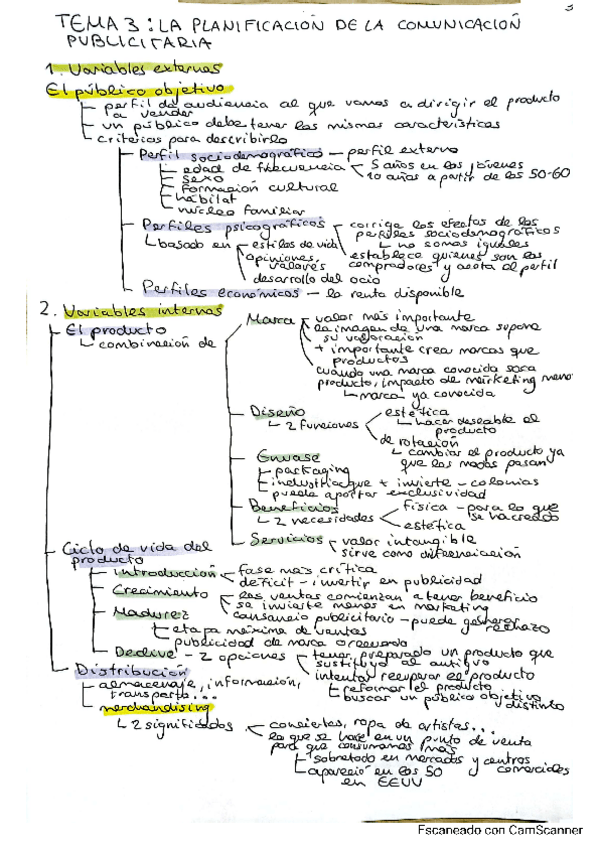 TEMA 3: LA PLANIFICACIÓN DE LA COMUNICACIÓN
PUBLICITARIA
1. Variables externas
El público objetivo
perfil de audiencia al que vamos a dirigir el producto
a vender
un público debe tener las mismas características
criterios para describirlo
Perfil sociodemográfico - perfil externo
edad de frecuencia
5 años en los jóvenes
10 años a partir de los 50-60
sexo
formación cultural
hábitat
núcleo familiar
Perfiles psicográficos
corrige los efectos de los
perfiles sociodemográficos
no somos iguales
basado en
estilos de vida
opiniones,
valores
desarrollo del ocio
establece quienes son los
compradores y acota al perfil
Perfiles económicos - la renta disponible
2. Variables internas
El producto
combinación de
Marca
valor más importante
la imagen de una marca supone
su valoración
+ importante crea marcas que
productos
cuando una marca conocida saca
producto, impacto de marketing meno
marca ya conocida
Diseño
2 funciones
estética
hacer deseable el
producto
de rotación
cambiar el producto ya
que las modas pasan
Envase
packaging
industria que + invierte - colonias
puede aportar exclusividad
Beneficios
2 necesidades
física - para lo que
se ha creado
estética
Servicios
valor intangible
sirve como diferenciación
Ciclo de vida del
producto
introducción
fase más crítica
déficit - invertir en publicidad
Crecimiento
las ventas comienzan a tener beneficio
se invierte menos en marketing
Madurez
cansancio publicitario - puede generar
rechazo
etapa máxima de ventas
publicidad de marca o recuerdo
Declive - 2 opciones
tener preparado un producto que
sustituya al antiguo
intentar recuperar el producto
reformar el producto
buscar un público objetivo
distinto
Distribución
almacenaje, información,
transporte...
merchandising
2 significados
conciertos, ropa de artistas...
lo que se hace en un punto de venta
para que consumamos más
sobretodo en mercados y centros
comerciales
apareció en los 50
en EEUU
Escaneado con CamScanner